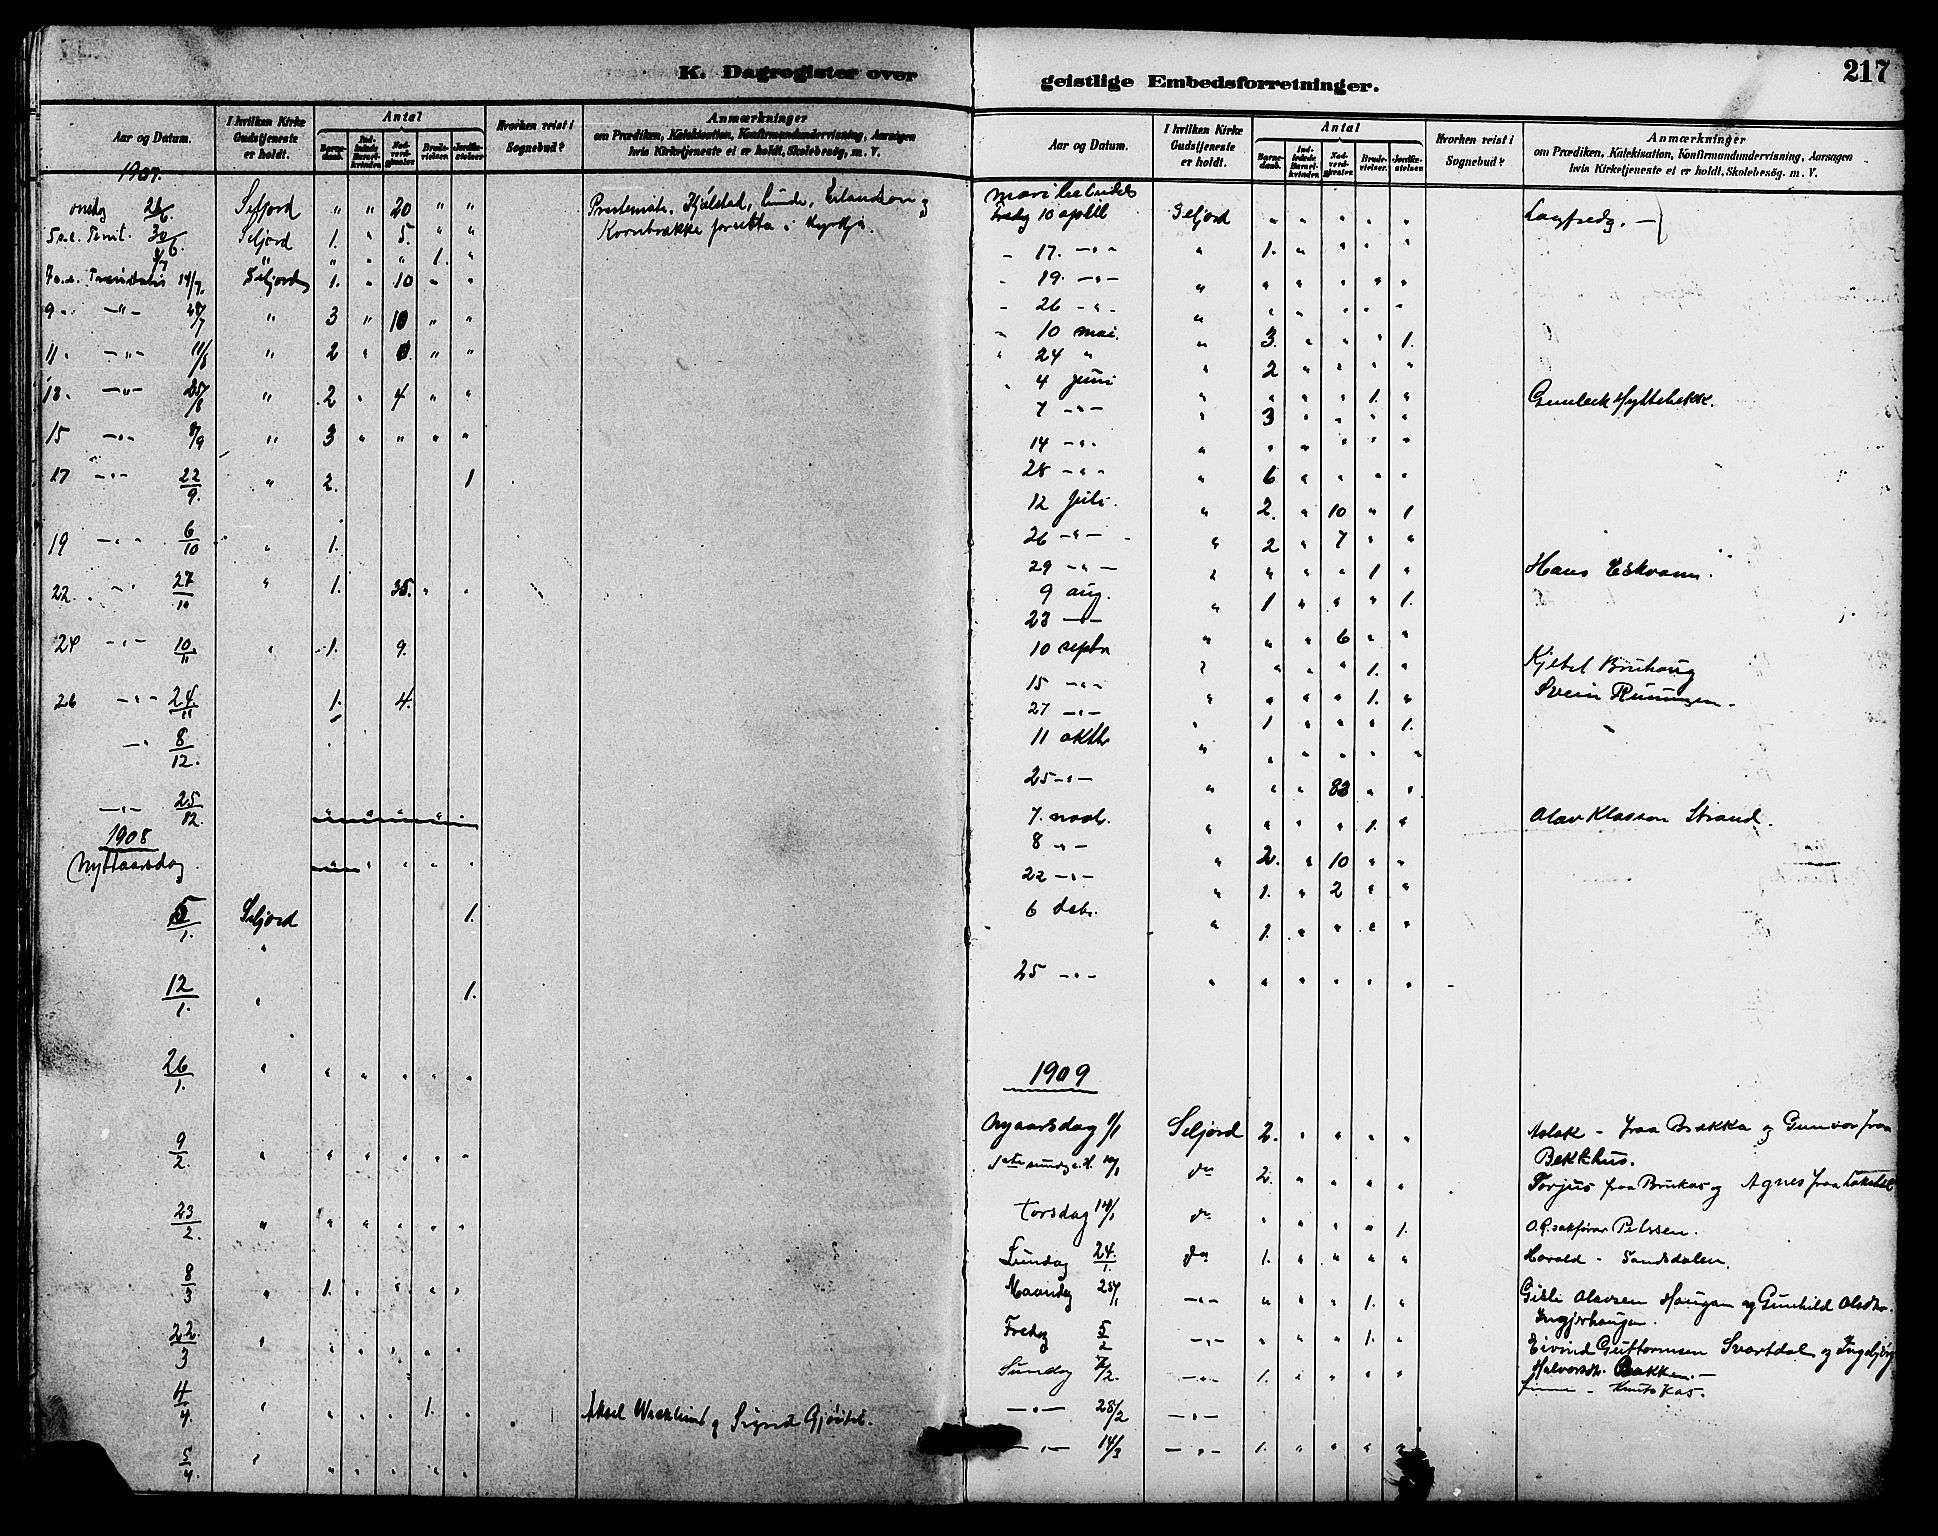 K. Dagregister over
geistlige Embedsforretninger.
217
Aar og Datum.
I hvilken Kirke Gudstjeneste er holdt.
Antal
Barnedaab.
Indledede Barselkvinder.
Nadverdgjester.
Brudevielser.
Jordfæstelser.
Hvorhen reist i Sognebud?
Anmærkninger
om Prædiken, Katekisation, Konfirmandundervisning, Aarsagen
hvis Kirketjeneste ei er holdt, Skolebesög, m. V.
1907.
onsdag 26/6. Seljord " " 20 " " Prestemöte. Kjölstad, Lunde, Erlandson og
5 s.e. Trinit. 30/6. Seljord 1. " 5. " " Kornbrække
3/7 " " " " 1. "
7 s.e. Trinitatis 14/7. Seljord 1. " 10 " "
9 " — " — 28/7 " 3 " 10 " "
11 " — " — 11/8 " 2 " " "
13. — " — 25/8 " 2 " 4 " "
15 — " — 8/9 " 3 " " " "
17 — " — 22/9. " 2. 1
19 — " — 6/10 " 1.
22 — " — 27/10 " 1. 35. " "
24 — " — 10/11 " 1. 9.
26 — " — 24/11 1. 4.
— " 8/12.
— " — 25/12. " " " " "
1908
Nyttaarsdag " " " " "
5/1. Seljord 1.
"
12/1. " 1.
26/1. " " " " " "
9/2. " " " " " "
23/2. " " " " " "
8/3 " 1. " " " "
22/3 " " " " " "
4/4. " " " " 1. " Aksel Wæxlund og Signe Gjöitil.
5/4. " " " " " "
Aar og Datum.
I hvilken Kirke Gudstjeneste er holdt.
Antal
Barnedaab.
Indledede Barselkvinder.
Nadverdgjester.
Brudevielser.
Jordfæstelser.
Hvorhen reist i Sognebud?
Anmærkninger
om Prædiken, Katekisation, Konfirmandundervisning, Aarsagen
hvis Kirketjeneste ei er holdt, Skolebesög, m. V.
Fredag 10 april Seljord " " " " "
" 17. — " " " 1. " " " "
" 19. — " — " " " " " "
" 26 — " — " " " " " "
" 10 mai. " 3. " " " 1.
" 24 " " 2 " " " "
" 4 juni " " " " 1. " Gunleik Hyttebekk.
7 — " — " 3 " " " "
14 — " — " " " " " "
28 — " " " 6 " " " "
12 juli. " 2. " 10 " 1
26 — " — " 2 " 7 " "
29 — " — " " " " 1 " Hans Eskvann.
9 aug. " 1 " " " 1.
23 — " — " " " 6 " "
10 septr " " " " 1. " Kjetil Bruhaug
15 — " — " " " " 1. " Svein Runningen.
27 — " — " 1 " " " 1.
11 oktbr " " " " " "
25 — " — " " " 83 " "
7. novb. " " " " 1. " Olav Klasson Strand.
8 " — " 2. " 10 " "
22 — " — " 1. " 2 " "
6 debr. " 1. " " " "
25 — " — " " " " " "
1909
Nyaarsdag 1/1 Seljord 2. " " " " Aslak – fraa Brekka og Gunvor fraa
Bekkhus.
1ste sundag e. H. 10/1 do 2. " " " " Torjus fraa Brukas og Agnes fraa
Torsdag 14/1 do " " " " 1. O.R.sakförar Pedersen.
Sundag 24/1. do 1. " " " " Harald – Sandsdalen.
Maandag 25/1 — " — " " " 1. " Gisle Olavsen Haugan og Gunhild Olsdtr.
Ingjerhaugen.
Fredag 5/2 — " — " " " 1. " Eivind Guttormsen Svartdal og Ingebjörg
Halvorsdtr. Bakken. –
Sundag 7/2. — " — 1. " " " " – Knutskas.
— " — 28/2 — " —
— " — 14/3 — " — 1. " " " "